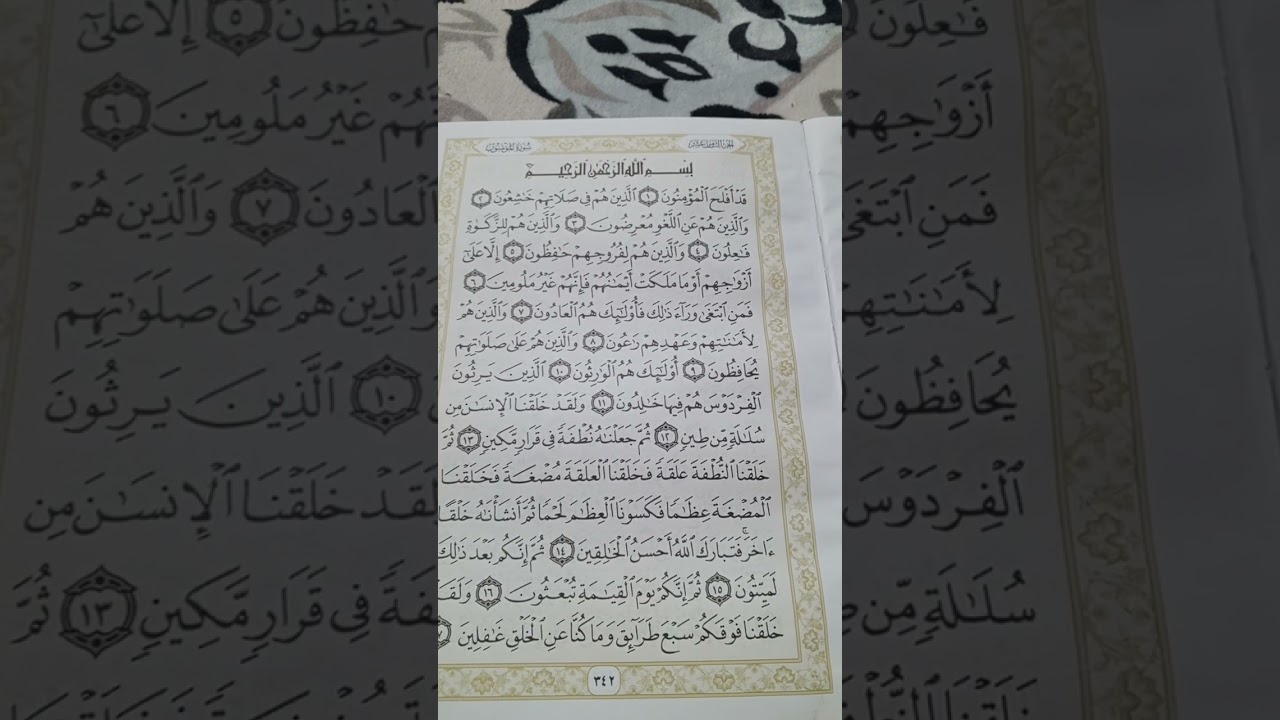 الجزء الثامن عشر
سورة المؤمنون
بِسْمِ ٱللَّهِ ٱلرَّحْمَٰنِ ٱلرَّحِيمِ
قَدْ أَفْلَحَ ٱلْمُؤْمِنُونَ ١ ٱلَّذِينَ هُمْ فِي صَلَاتِهِمْ خَٰشِعُونَ ٢
وَٱلَّذِينَ هُمْ عَنِ ٱللَّغْوِ مُعْرِضُونَ ٣ وَٱلَّذِينَ هُمْ لِلزَّكَوٰةِ
فَٰعِلُونَ ٤ وَٱلَّذِينَ هُمْ لِفُرُوجِهِمْ حَٰفِظُونَ ٥ إِلَّا عَلَىٰٓ
أَزْوَٰجِهِمْ أَوْ مَا مَلَكَتْ أَيْمَٰنُهُمْ فَإِنَّهُمْ غَيْرُ مَلُومِينَ ٦
فَمَنِ ٱبْتَغَىٰ وَرَآءَ ذَٰلِكَ فَأُو۟لَٰٓئِكَ هُمُ ٱلْعَادُونَ ٧ وَٱلَّذِينَ هُمْ
لِأَمَٰنَٰتِهِمْ وَعَهْدِهِمْ رَٰعُونَ ٨ وَٱلَّذِينَ هُمْ عَلَىٰ صَلَوَٰتِهِمْ
يُحَافِظُونَ ٩ أُو۟لَٰٓئِكَ هُمُ ٱلْوَٰرِثُونَ ١٠ ٱلَّذِينَ يَرِثُونَ
ٱلْفِرْدَوْسَ هُمْ فِيهَا خَٰلِدُونَ ١١ وَلَقَدْ خَلَقْنَا ٱلْإِنسَٰنَ مِن
سُلَٰلَةٍ مِّن طِينٍ ١٢ ثُمَّ جَعَلْنَٰهُ نُطْفَةً فِي قَرَارٍ مَّكِينٍ ١٣ ثُمَّ
خَلَقْنَا ٱلنُّطْفَةَ عَلَقَةً فَخَلَقْنَا ٱلْعَلَقَةَ مُضْغَةً فَخَلَقْنَا
ٱلْمُضْغَةَ عِظَٰمًا فَكَسَوْنَا ٱلْعِظَٰمَ لَحْمًا ثُمَّ أَنشَأْنَٰهُ خَلْقًا
ءَاخَرَ ۚ فَتَبَارَكَ ٱللَّهُ أَحْسَنُ ٱلْخَٰلِقِينَ ١٤ ثُمَّ إِنَّكُم بَعْدَ ذَٰلِكَ
لَمَيِّتُونَ ١٥ ثُمَّ إِنَّكُمْ يَوْمَ ٱلْقِيَٰمَةِ تُبْعَثُونَ ١٦ وَلَقَدْ
خَلَقْنَا فَوْقَكُمْ سَبْعَ طَرَآئِقَ وَمَا كُنَّا عَنِ ٱلْخَلْقِ غَٰفِلِينَ ١٧
٣٤٢